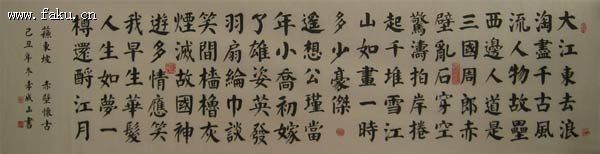 www.faku.cn
大江東去浪
淘盡千古風
流人物故壘
西邊人道是
三國周郎赤
壁亂石穿空
驚濤拍岸捲
起千堆雪江
山如畫一時
多少豪傑
遙想公瑾當
年小喬初嫁
了雄姿英發
羽扇綸巾談
笑間檣櫓灰
煙滅故國神
遊多情應笑
我早生華髮
人生如夢一
樽還酹江月
蘇東坡 赤壁懷古
己丑年冬李成山書